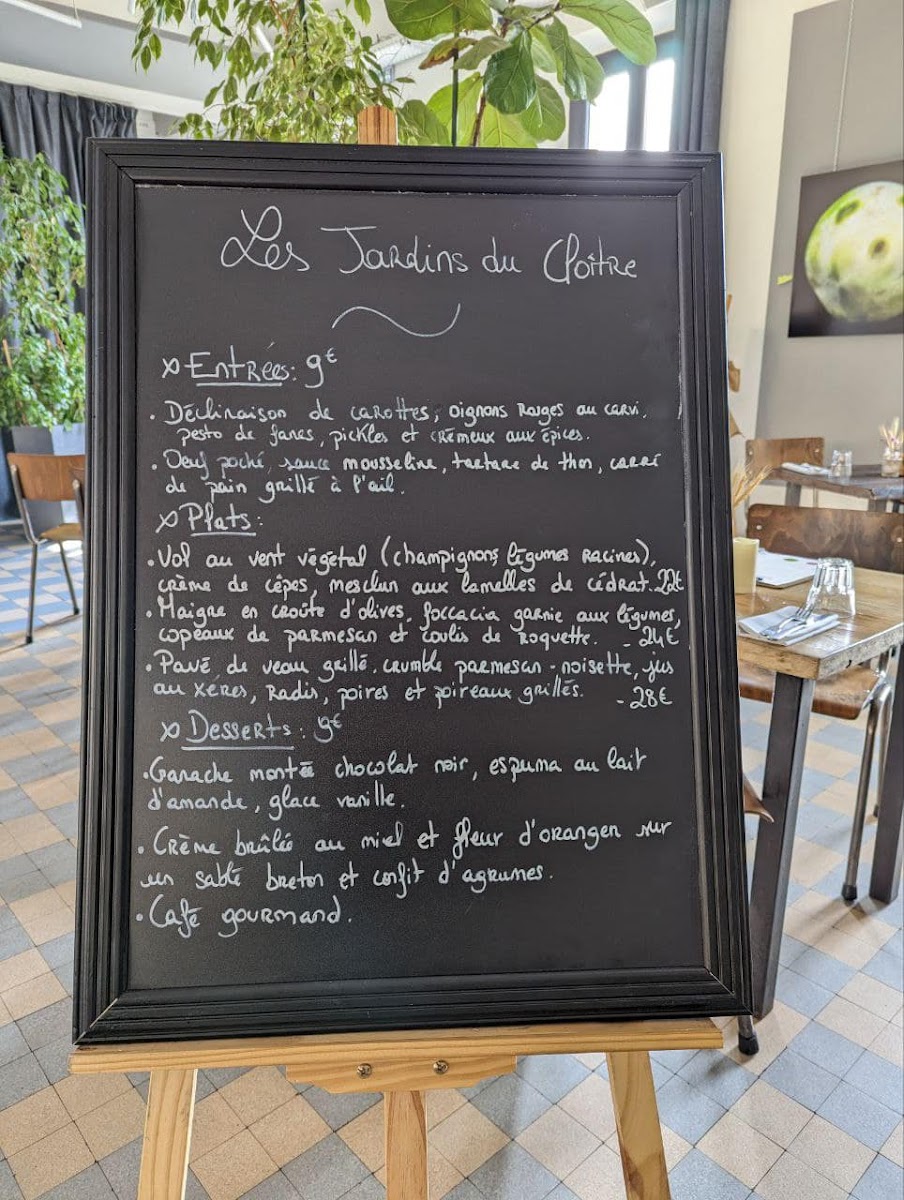 Les Jardins du Cloître
Entrées: 9€
• Déclinaison de carottes, oignons rouges au carvi,
pesto de fanes, pickles et crémeux aux épices.
• Oeuf poché, sauce mousseline, tartare de thon, carré
de pain grillé à l'ail.
Plats:
• Vol au vent végétal (champignons, légumes racines),
crème de cêpes, mesclun aux lamelles de cédrat. 22€
• Maigre en croûte d'olives, foccacia garnie aux légumes,
copeaux de parmesan et coulis de roquette. - 24€
• Pavé de veau grillé, crumble parmesan - noisette, jus
au xérès, radis, poires et poireaux grillés. - 28€
Desserts: 9€
• Ganache monté chocolat noir, espuma au lait
d'amande, glace vanille.
• Crème brûlée au miel et fleur d'oranger sur
un sablé breton et confit d'agrumes.
• Café gourmand.